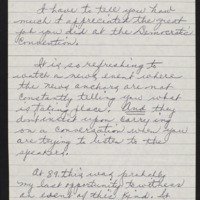 I have to tell you how
much I appreciated the great
job you did at the Democratic
Convention.
It is so refreshing to
watch a news event where
the news anchors are not
constantly telling you what
is taking place. And they
don't insist upon carrying
on a conversation when you
are trying to listen to the
speaker.
At 84 this was probably
my last opportunity to witness
an event of this kind. It